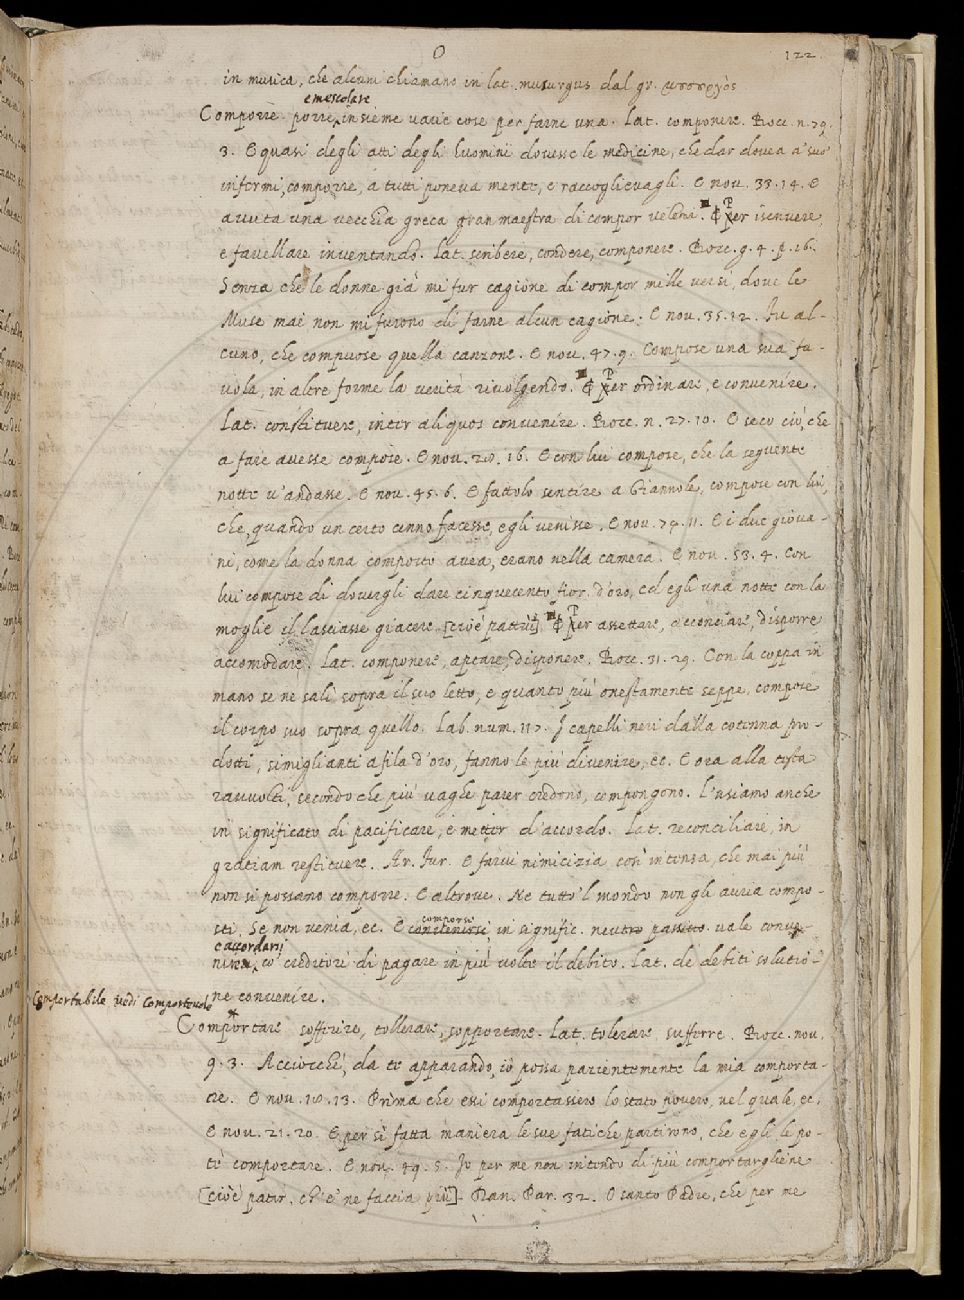 O
122
in musica, che alcuni chiamano in lat. musurgus dal gr.
e mescolare
Comporre. porre insieme varie cose per farne una. Lat. componere. Bocc. n. 79.
3. E quasi degli atti degli huomini dovesse le medicine, che dar dovea a' suoi
infermi, comporre, a tutti poneva mente, e raccoglievagli. E nov. 33. 14. E
avuta una vecchia greca gran maestra di compor veleni. ¶ Per iscrivere,
e favellare inventando. Lat. scribere, condere, componere. Bocc. g. 4. p. 16.
Senza che le donne già mi fur cagione di compor mille versi, dove le
Muse mai non mi furono di farne alcun cagione. E nov. 35. 12. Fu al-
cuno, che compuose quella canzone. E nov. 47. 9. Compose una sua fa-
vola, in altre forme la verità rivolgendo. ¶ Per ordinare, e convenire.
Lat. constituere, inter aliquos convenire. Bocc. n. 27. 10. E seco ciò, che
a fare avesse compose. E nov. 28. 16. E con lui compose, che la seguente
notte v'andasse. E nov. 45. 6. E fattolo sentire a Giannole, compose con lui,
che, quando un certo cenno facesse, egli venisse. E nov. 79. 11. E i due giova-
ni, come la donna composto avea, erano nella camera. E nov. 53. 4. Con
lui compose di dovergli dare cinquecento fior. d'oro, ed egli una notte con la
moglie il lasciasse giacere [cioè pattuì] ¶ Per assettare, acconciare, disporre
accomodare. Lat. componere, aptare, disponere. Bocc. 31. 29. Con la coppa in
mano se ne salì sopra il suo letto, e quanto più onestamente seppe, compose
il corpo suo sopra quello. Lab. num. 117. I capelli neri dalla cotenna pro-
dotti, simiglianti a fila d'oro, fanno le più divenire, ec. E ora alla testa
ravvolti, secondo che più vaghe parer credono, compongono. L'usiamo anche
in significato di pacificare, e metter d'accordo. Lat. reconciliare, in
gratiam restituere. Ar. Fur. E farvi nimicizia così intensa, che mai più
non si possano comporre. E altrove. Ne tutto 'l mondo non gli avria compo-
comporsi
sti, Se non venia, ec. E in signific. neutro passivo vale conve-
e accordarsi
nire, co' creditori di pagare in più volte il debito. Lat. de debiti solutio-
ne convenire.
Comportabile vedi Comportevole
Comportare soffrire, tollerare, sopportare. Lat. tolerare sufferre. Bocc. nov.
9. 3. Acciocchè, da te apparando, io possa pazientemente la mia comporta-
re. E nov. 18. 13. Prima che essi comportassero lo stato povero, nel quale, ec.
E nov. 21. 20. E per sì fatta maniera le sue fatiche partirono, che egli le po-
tè comportare. E nov. 49. 5. Io per me non intendo di più comportargliene
[cioè patir, ch'e' ne faccia più]. Dan. Par. 32. O santo Padre, che per me